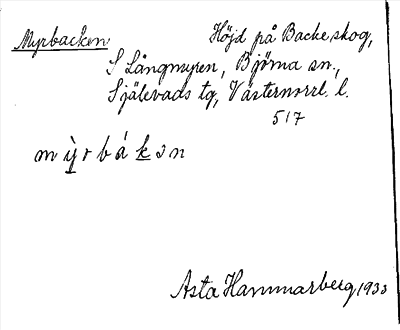 Myrbacken Höjd på Backe skog,
S Långmyren, Björna sn.,
Själevads tg, Västernorrl. l.
517
mỳrbákən
Asta Hammarberg 1933